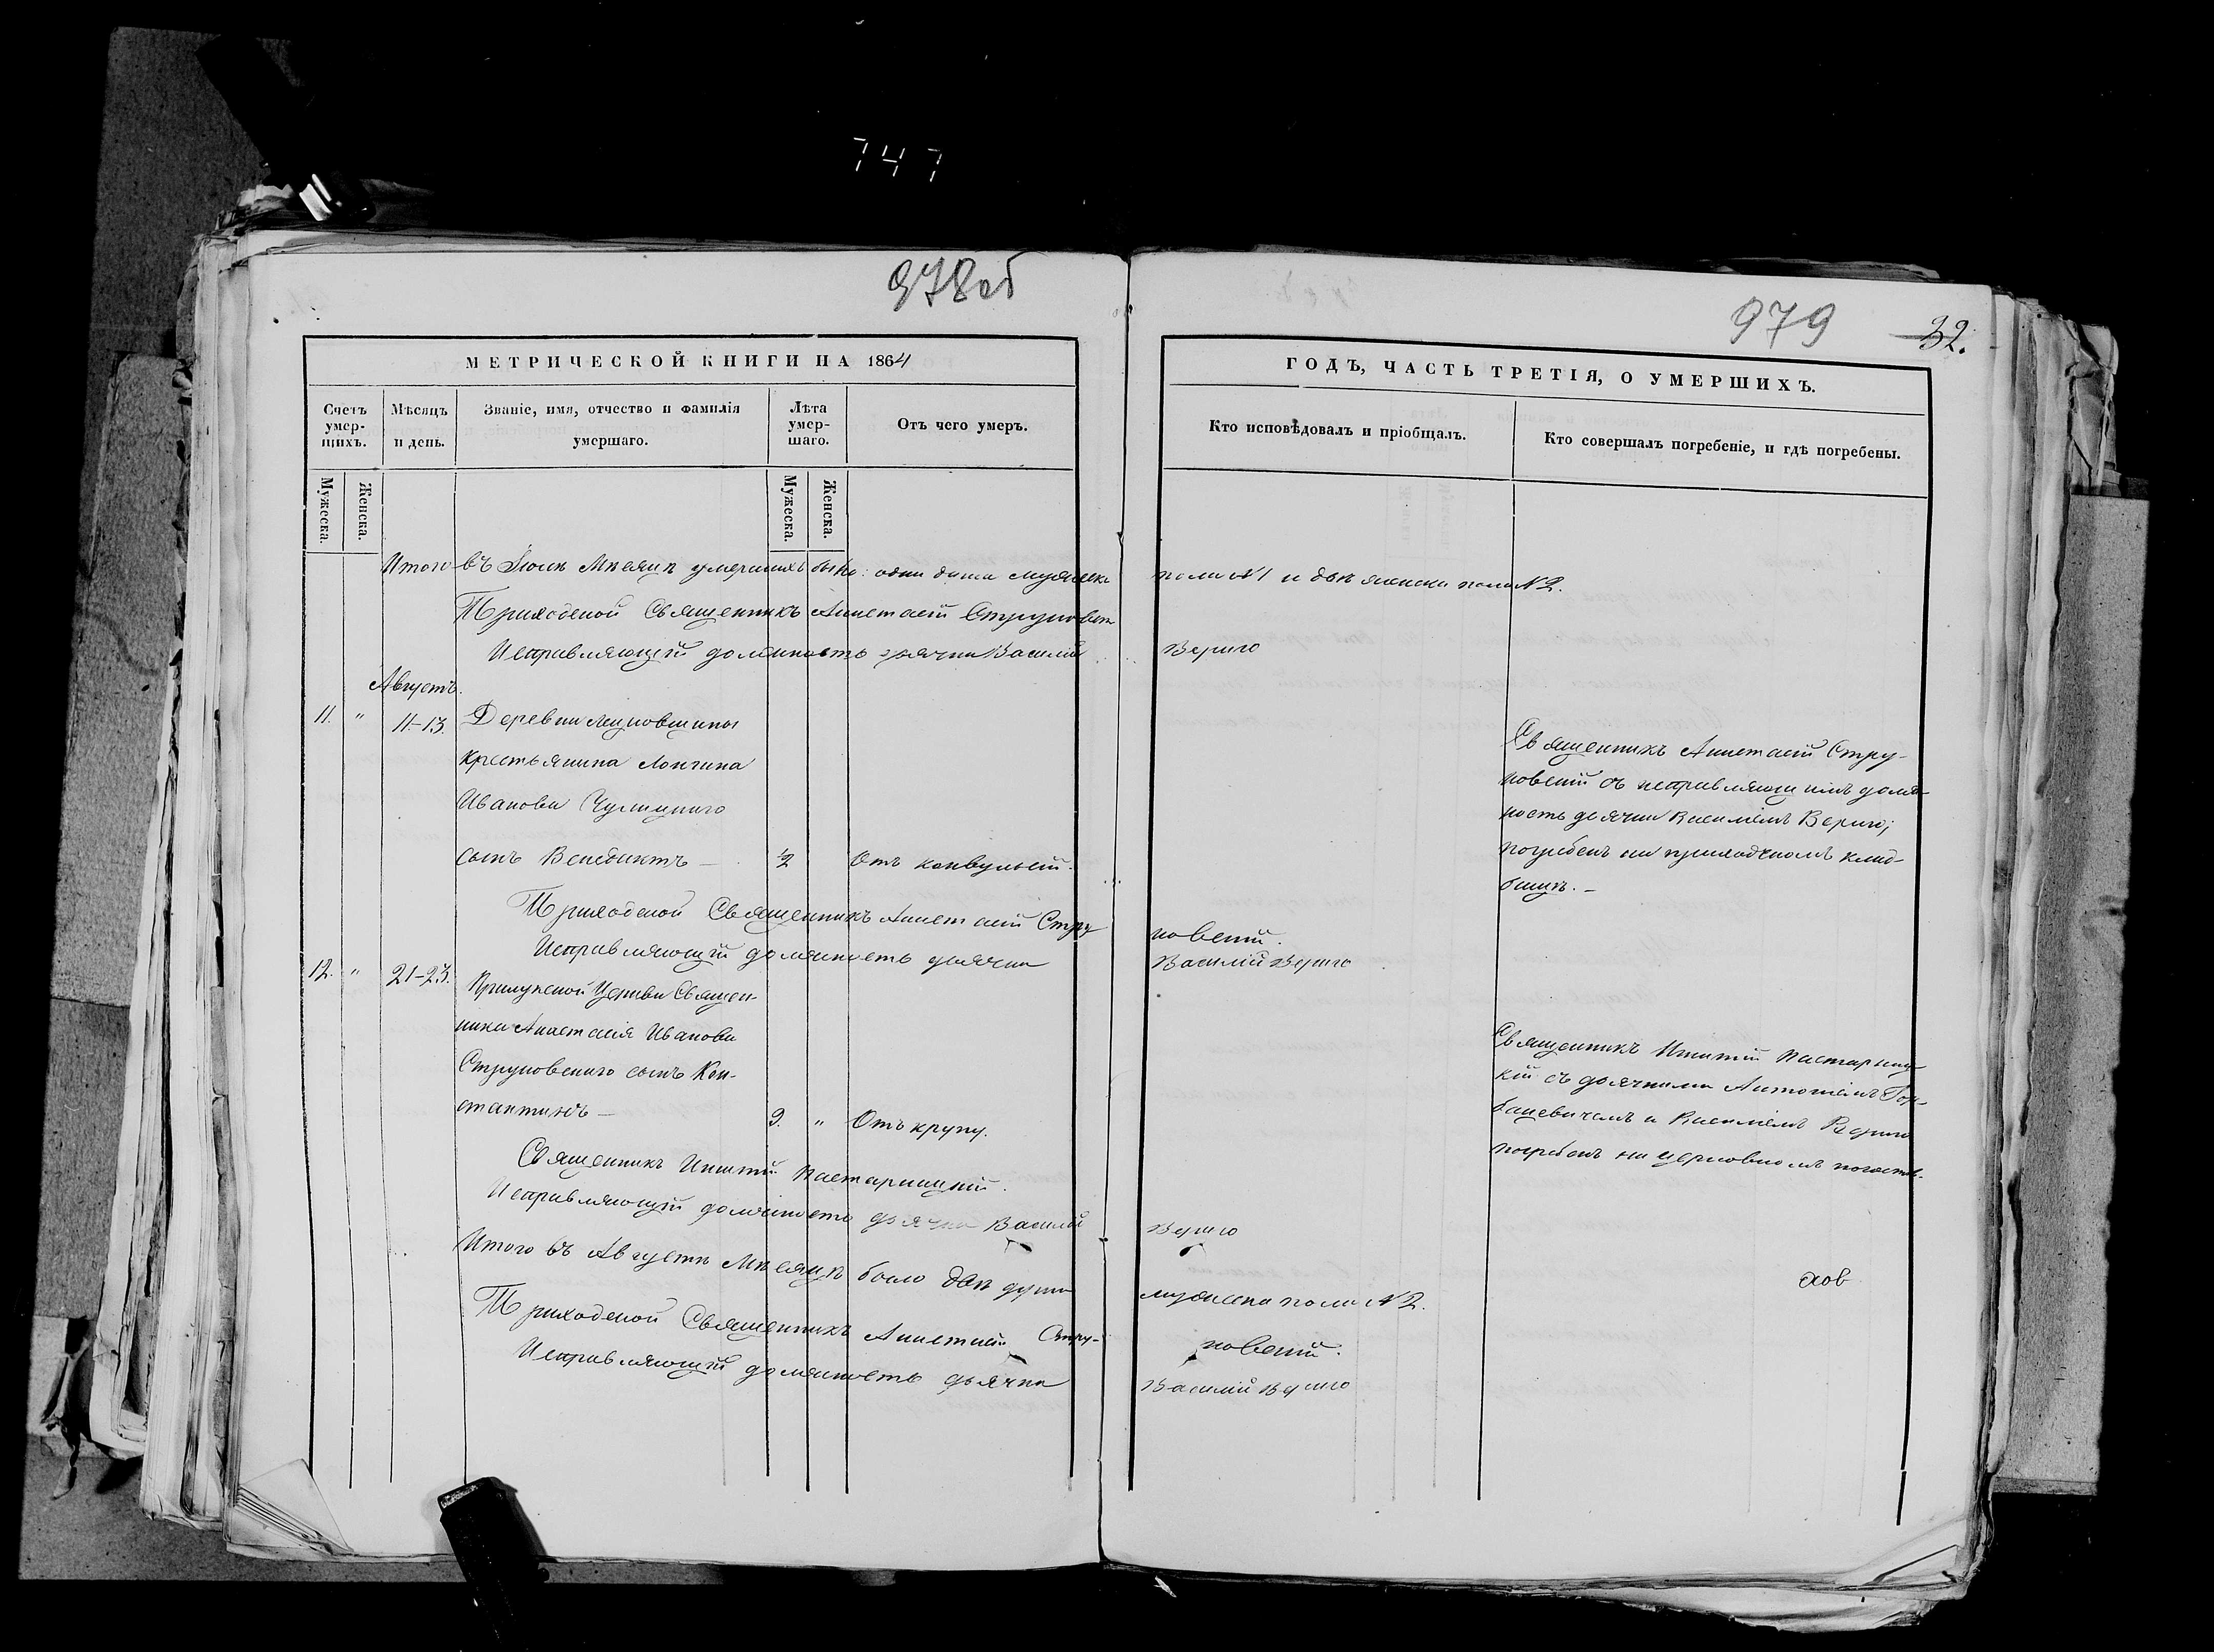 747
978об
979 32.
МЕТРИЧЕСКОЙ КНИГИ НА 1864
ГОДЪ, ЧАСТЬ ТРЕТІЯ, О УМЕРШИХЪ.
Счетъ умер-шихъ.
Мѣсяцъ и день.
Званіе, имя, отчество и фамилія умершаго.
Лѣта умер-шаго.
Отъ чего умеръ.
Кто исповѣдовалъ и пріобщалъ.
Кто совершалъ погребеніе, и гдѣ погребены.
Мужеска. Женска. Мужеска. Женска.
Итого въ Іюлѣ Мѣсяцѣ умершихъ было: одна душа мужеска пола №1 и двѣ женска пола №2.
Приходской Священникъ Анастасій
Исправляющій должность дьячка Василій Вериго
Августъ.
11. " 11-13. Деревни
крестьянина Лонгина
Иванова
сынъ Венедиктъ — ½ Отъ конвульсій.
Священникъ Анастасій Стру-
новскій съ исправляющимъ долж-
ность дьячка Василіемъ Вериго;
погребенъ на приходскомъ клад-
бищѣ. —
Приходской Священникъ Анастасій Стру новскій.
Исправляющій должность дьячка Василій Вериго
12. " 21-23. Прилукской Церкви Священ-
ника Анастасія Иванова
Струновскаго сынъ Кон-
стантинъ — 9. " Отъ крупу.
Священникъ Игнатій
кій съ дьячками Антоніемъ Гор-
бацевичемъ и Василіемъ Вериго
погребенъ на церковномъ погостѣ.
Священникъ Игнатій
Исправляющій должность дьячка Василій Вериго
Итого въ Августѣ Мѣсяцѣ было двѣ души мужеска пола №2.
Приходской Священникъ Анастасій Стру- новскій.
Исправляющій должность дьячка Василій Вериго